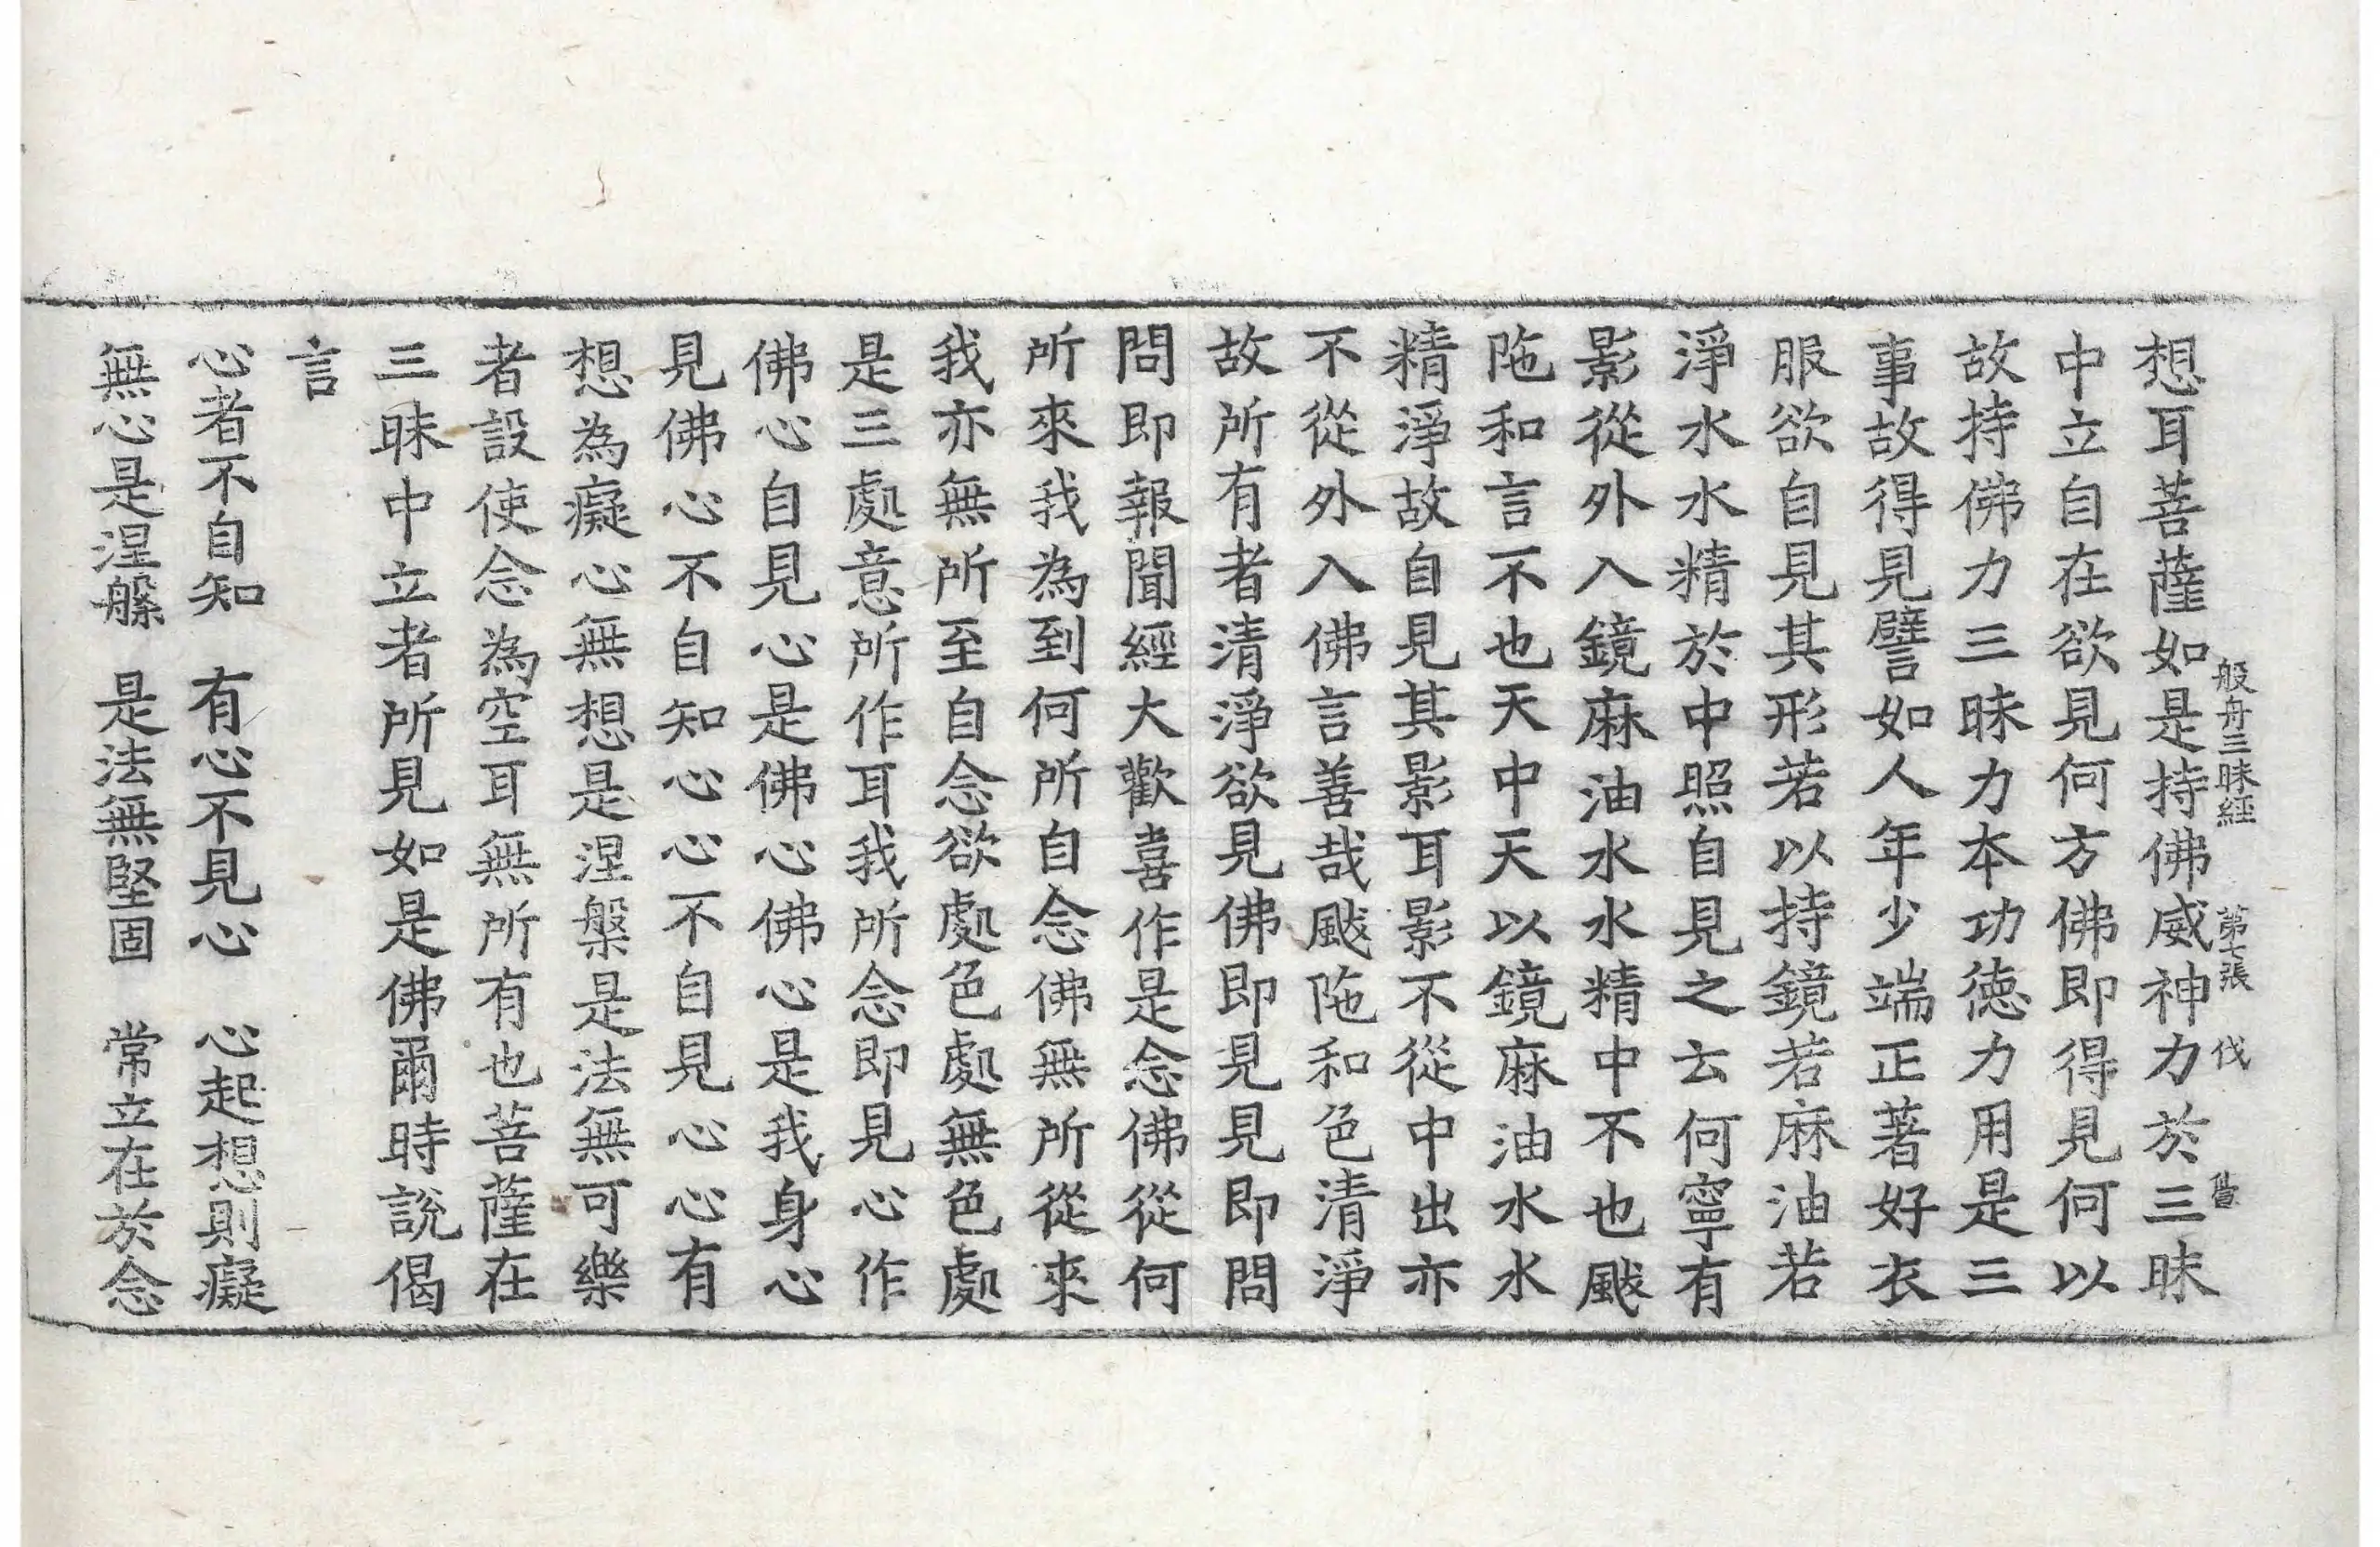 般舟三昧經　第七張　伐
想耳菩薩如是持佛威神力於三昧
中立自在欲見何方佛即得見何以
故持佛力三昧力本功德力用是三
事故得見譬如人年少端正著好衣
服欲自見其形若以持鏡若麻油若
淨水水精於中照自見之云何寧有
影從外入鏡麻油水水精中不也颰
陁和言不也天中天以鏡麻油水水
精淨故自見其影耳影不從中出亦
不從外入佛言善哉颰陁和色清淨
故所有者清淨欲見佛即見見即問
問即報聞經大歡喜作是念佛從何
所來我為到何所自念佛無所從來
我亦無所至自念欲處色處無色處
是三處意所作耳我所念即見心作
佛心自見心是佛心佛心是我身心
見佛心不自知心心不自見心心有
想為癡心無想是涅槃是法無可樂
者設使念為空耳無所有也菩薩在
三昧中立者所見如是佛爾時說偈
言
心者不自知　有心不見心　心起想則癡
無心是涅槃　是法無堅固　常立在於念